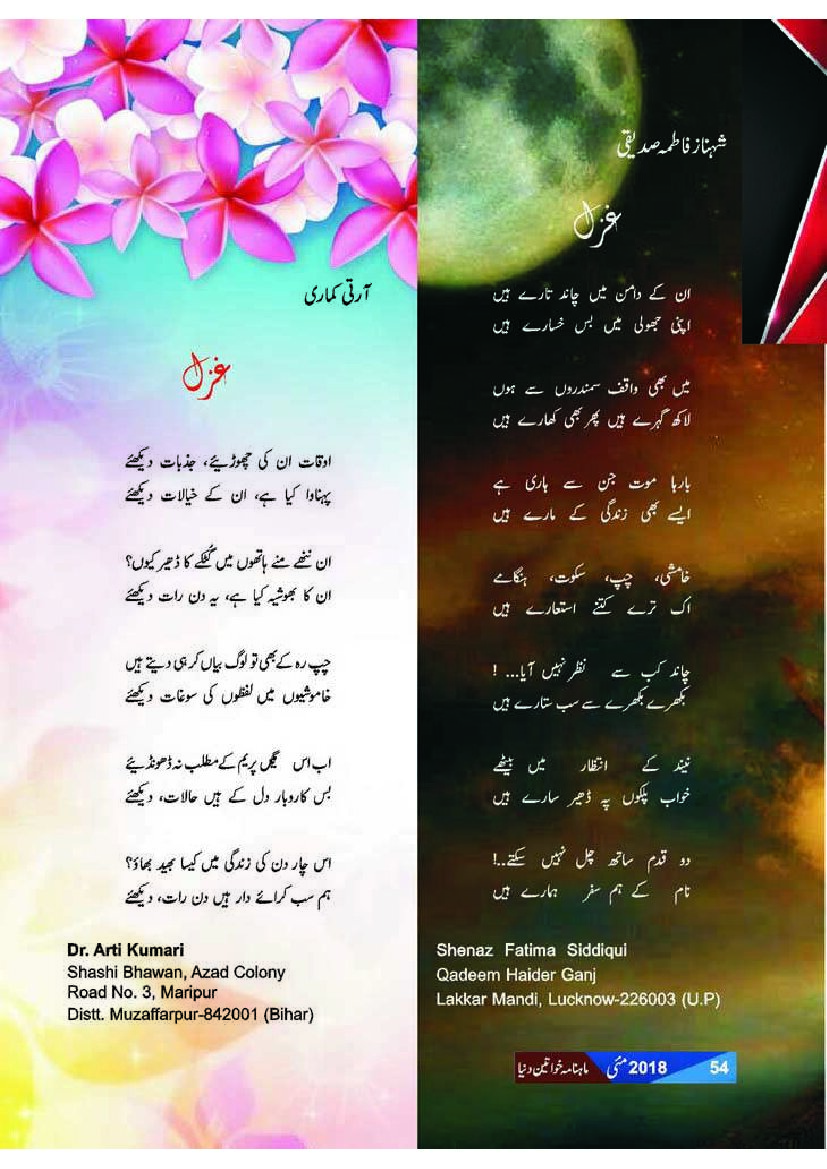 شہناز فاطمہ صدیقی
غزل
ان کے دامن میں چاند تارے ہیں
اپنی جھولی میں بس خسارے ہیں
میں بھی واقف سمندروں سے ہوں
لاکھ گہرے ہیں پھر بھی کھارے ہیں
بارہا موت جن سے ہاری ہے
ایسے بھی زندگی کے مارے ہیں
خامشی، چپ، سکوت، ہنگامے
اک ترے کتنے استعارے ہیں
چاند کب سے نظر نہیں آیا... !
بکھرے بکھرے سے سب ستارے ہیں
نیند کے انتظار میں بیٹھے
خواب پلکوں پہ ڈھیر سارے ہیں
دو قدم ساتھ چل نہیں سکتے..!
نام کے ہم سفر ہمارے ہیں
Shenaz Fatima Siddiqui
Qadeem Haider Ganj
Lakkar Mandi, Lucknow-226003 (U.P)
آرتی کماری
غزل
اوقات ان کی چھوڑیئے، جذبات دیکھئے
پہناوا کیا ہے، ان کے خیالات دیکھئے
ان ننھے منے ہاتھوں میں گٹکے کا ڈھیر کیوں؟
ان کا بھوشیہ کیا ہے، یہ دن رات دیکھئے
چپ رہ کے بھی تو لوگ بیاں کر ہی دیتے ہیں
خاموشیوں میں لفظوں کی سوغات دیکھئے
اب اس میں پریم کے مطلب نہ ڈھونڈیئے
بس کاروبار دل کے ہیں حالات، دیکھئے
اس چار دن کی زندگی میں کیسا بھید بھاؤ؟
ہم سب کرائے دار ہیں دن رات، دیکھئے
Dr. Arti Kumari
Shashi Bhawan, Azad Colony
Road No. 3, Maripur
Distt. Muzaffarpur-842001 (Bihar)
ماہنامہ خواتین دنیا مئی 2018 54